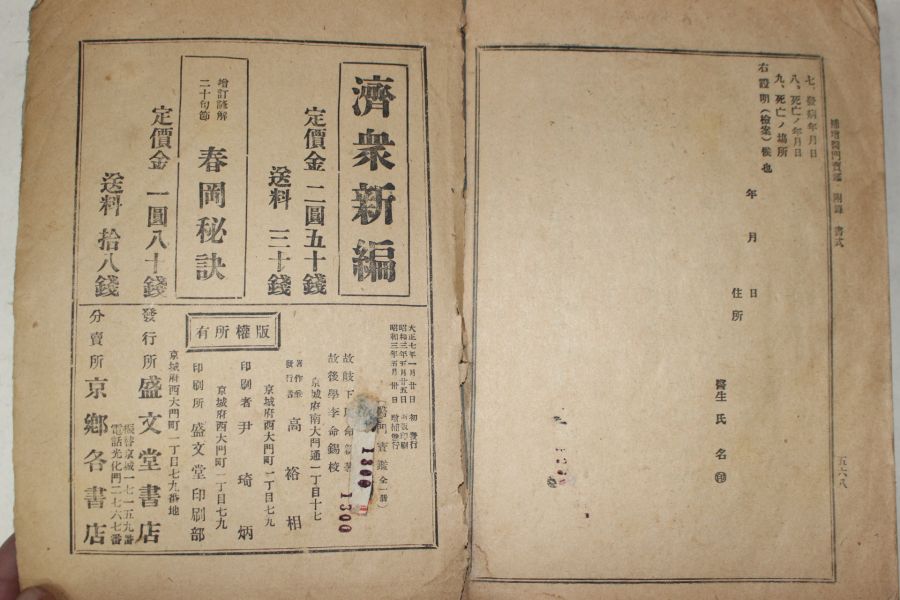 補增醫門寶鑑 附錄 書式
五六八
七、發病年月日
八、死亡ノ年月日
九、死亡ノ場所
右證明(檢案)候也
年 月 日
住所
醫生 氏 名 ㊞
濟衆新編
定價金 二圓五十錢
送料 三十錢
增訂諺解
二十句節
春岡秘訣
定價金 一圓八十錢
送料 拾八錢
大正七年一月廿日 初 發行
昭和三年五月廿五日 印刷
昭和三年五月卅日 發行
醫門寶鑑 全一冊
故後學李命錫校
京城府南大門通一丁目十七
著作兼
發行者 高裕相
京城府西大門町一丁目七九
印刷者 尹琦炳
京城府西大門町一丁目七九
印刷所 盛文堂印刷部
版權所有
京城府西大門町一丁目七九番地
發行所 盛文堂書店
振替京城一七一五九番
電話光化門二七六七番
分賣所 京鄉各書店
1300 1300